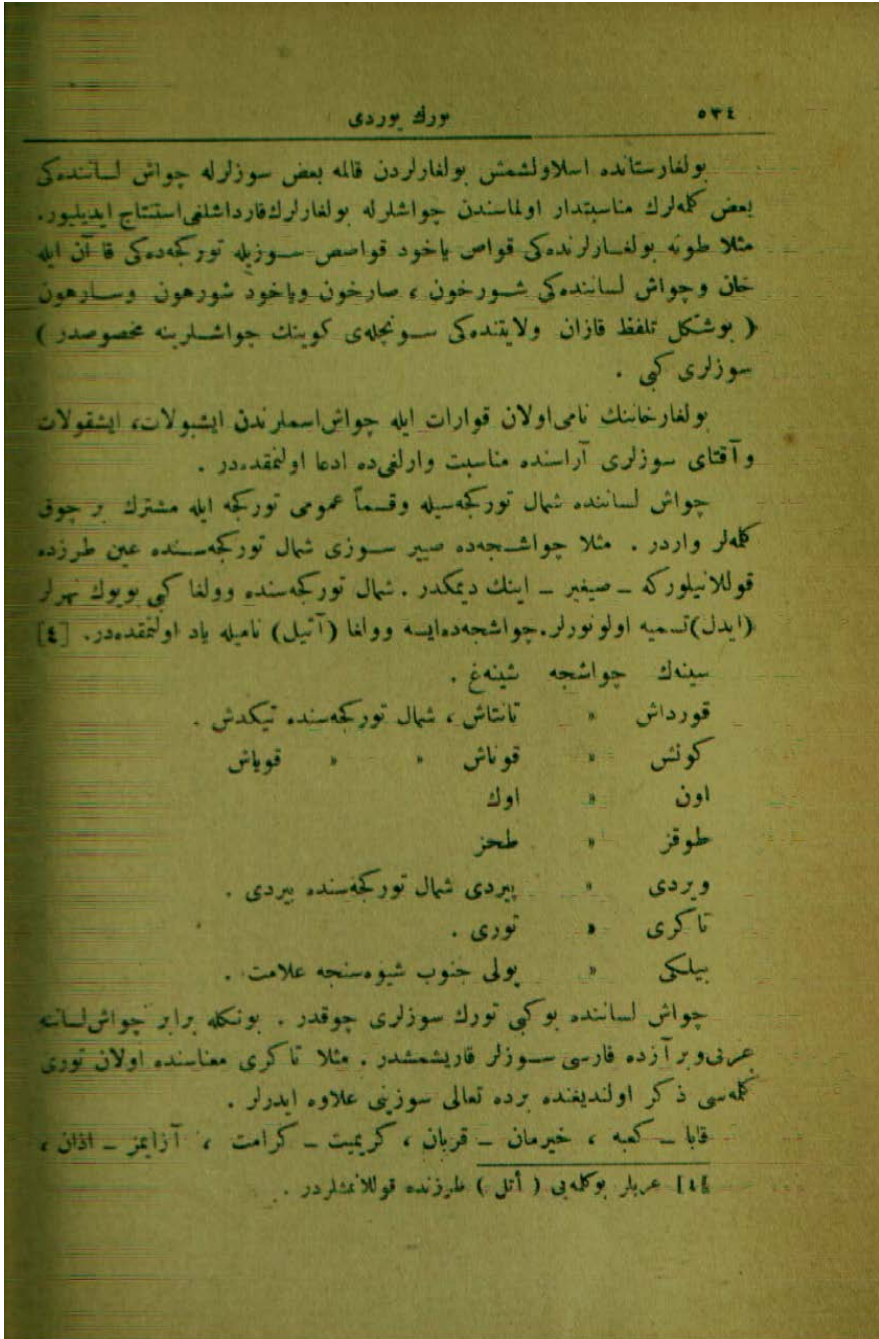 ٥٣٤
تورك يوردى
بولغارستانده اسلاولشمش بولغارلردن قالمه بعض سوزلرله جواش لساننده‌كى
بعض كله‌لرك مناسبتدار اولماسندن جواشلرله بولغارلرك قارداشلغى استنتاج ايديليور.
مثلا طونه بولغارلرنده‌كى قواص ياخود قواصص سوزيله توركجه‌ده‌كى قا آن ايله
خان وجواش لساننده‌كى شورخون ، صارخون وياخود شورهون وسارهون
( بوشكل تلفظ قازان ولايتنده‌كى سونجله‌ى كوينك جواشلرينه مخصوصدر )
سوزلرى كبى .
بولغارخاننك نامى اولان قوارات ايله جواش اسملرندن ايشبولات، ايشقولات
و آقتاى سوزلرى آراسنده مناسبت وارلغى‌ده ادعا اولنمقده‌در .
جواش لساننده شمال توركجه‌سيله وقسماً عمومى توركجه ايله مشترك بر چوق
كله‌لر واردر . مثلا جواشجه‌ده صيير سوزى شمال توركجه‌سنده عين طرزده
قوللانيلوركه ــ صيغير ــ اينك ديمكدر . شمال توركجه‌سنده وولغا كبى بويوك نهرلر
(ايدل) تسميه اولونورلر. جواشجه‌ده‌ايسه وولغا (آتيل) ناميله ياد اولنمقده‌در. [٤]
سينه‌ك جواشجه شينه‌غ .
قورداش » تانتاش ، شمال توركجه‌سنده تيكدش .
كونش » قوناش » » قوياش
اون » اوك
طوقز » طحز
ويردى » پيردى شمال توركجه‌سنده بيردى .
تاكرى » تورى .
بيلكى » پولى جنوب شيوه‌سنجه علامت .
جواش لساننده بوكبى تورك سوزلرى چوقدر . بونكله برابر جواش لساننه
عربى وبر آزده فارسى سوزلر قاريشمشدر . مثلا تاكرى معناسنده اولان تورى
كله‌سى ذكر اولنديغنده برده تعالى سوزينى علاوه ايدرلر .
قابا ــ كعبه ، خيرمان ــ قربان ، كريميت ــ كرامت ، آزايمز ــ اذان ،
[٤] عربلر بوكله‌يى ( أتل ) طرزنده قوللانمشلردر .